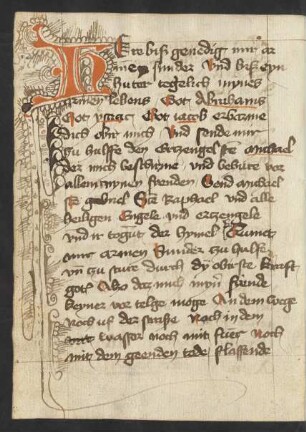 Here biß genedig mir ar
men sunder Und biß eyn
huter tegelich mynes
armen lebens Got Abrahams
Got ysaac Got iacob erbarme
dich obir mich Und sende mir
zu hulffe den Erczengel ste michael
der mich beschirme und behute vor
allen mynen fienden Send michael
ste gabriel Ste Raphael und alle
heiligen Engele und erczengele
und ir togunt der hymel kumet
mir armen Sunder zu hulffe
un zu sture durch dy obirste krafft
gotes Also daz mich myn fiende
keyner vor telge moge An dem wege
Noch uf der strasse Noch in dem
wasser noch mit fuer Noch
mit dem geenden tode slaffende